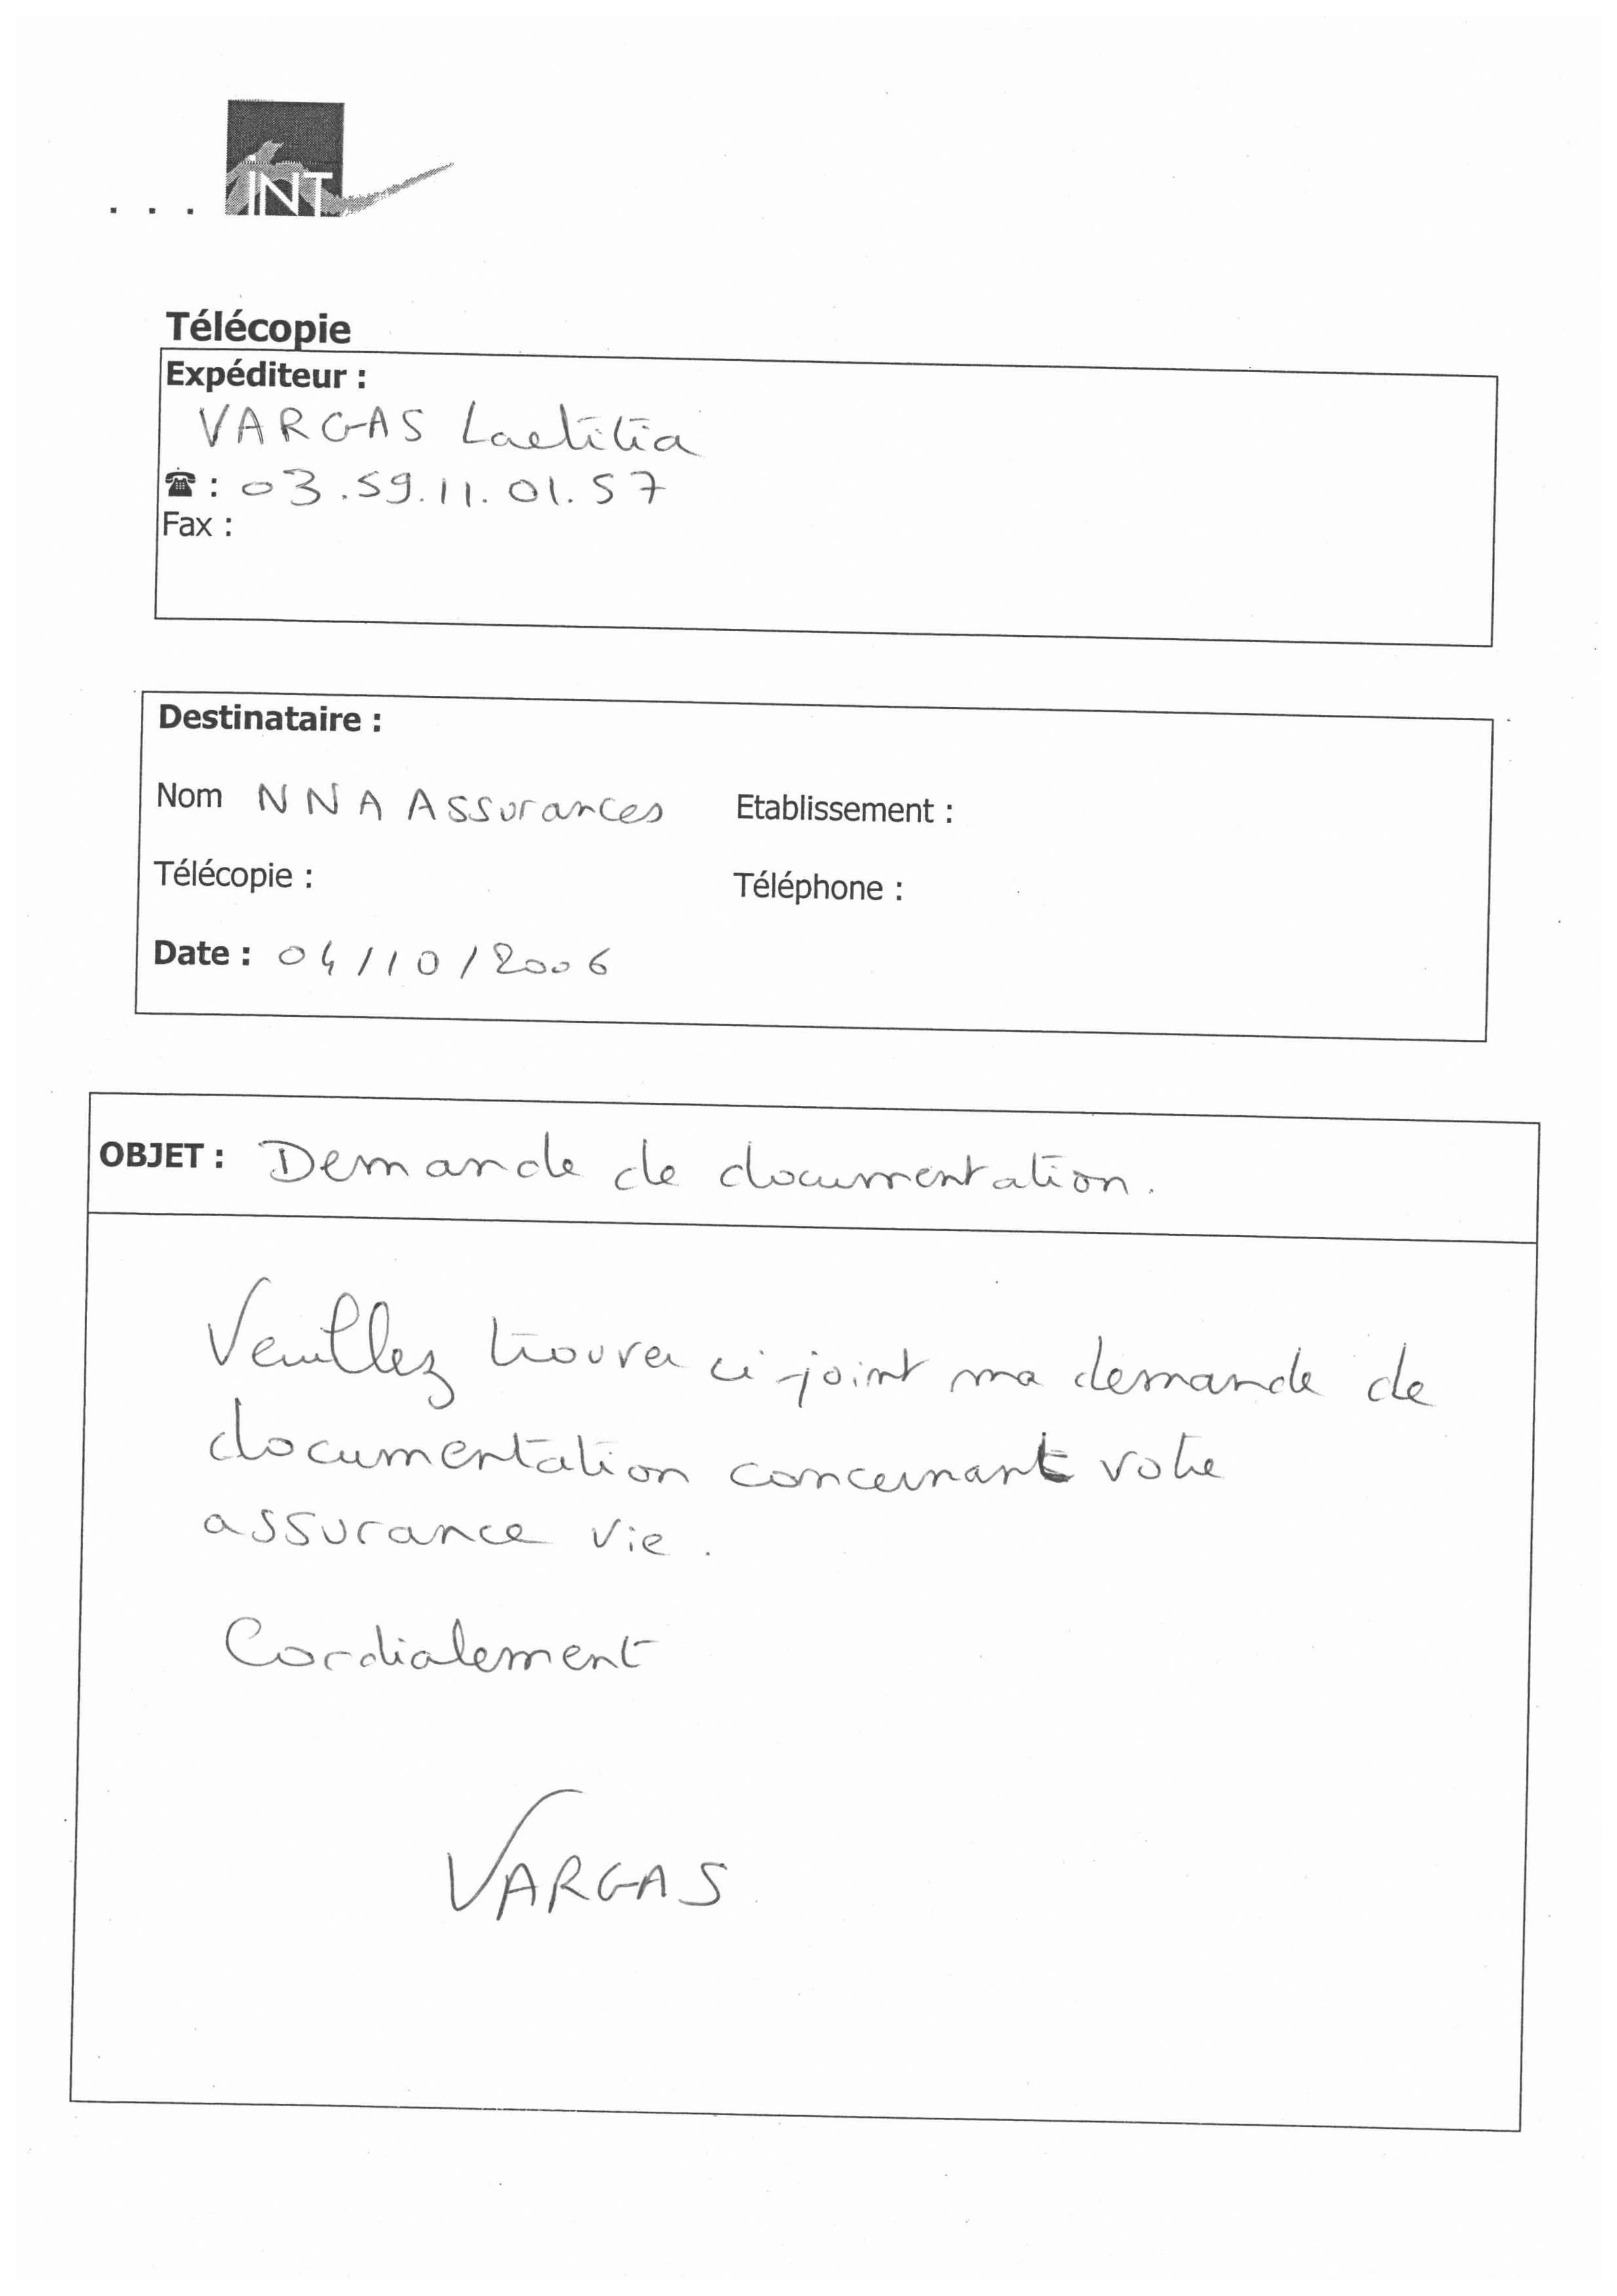 ... INT
Télécopie
Expéditeur :
VARGAS Laetitia
☎ : 03.59.11.01.57
Fax :
Destinataire :
Nom NNA Assurances Etablissement :
Télécopie : Téléphone :
Date : 04/10/2006
OBJET : Demande de documentation.
Veuillez trouver ci-joint ma demande de
documentation concernant votre
assurance vie.
Cordialement
VARGAS